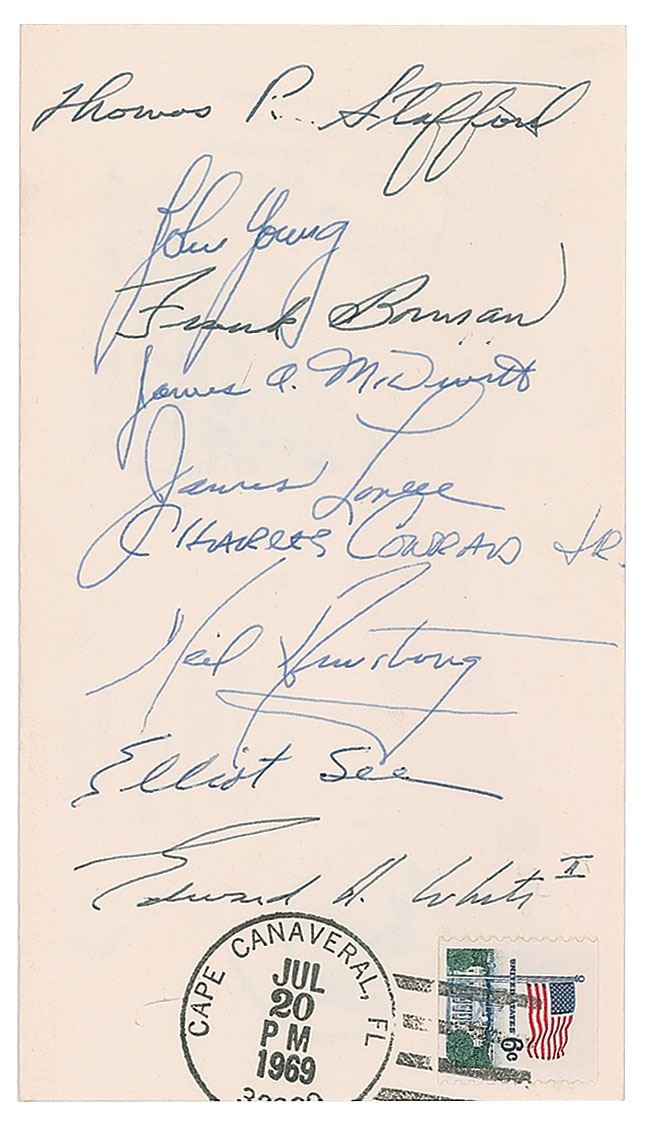 Thomas P. Stafford
John Young
Frank Borman
James A. McDivitt
James Lovell
CHARLES CONRAD JR.
Neil Armstrong
Elliot See
Edward H. White II
CAPE CANAVERAL, FL
JUL
20
PM
1969
UNITED STATES
6c